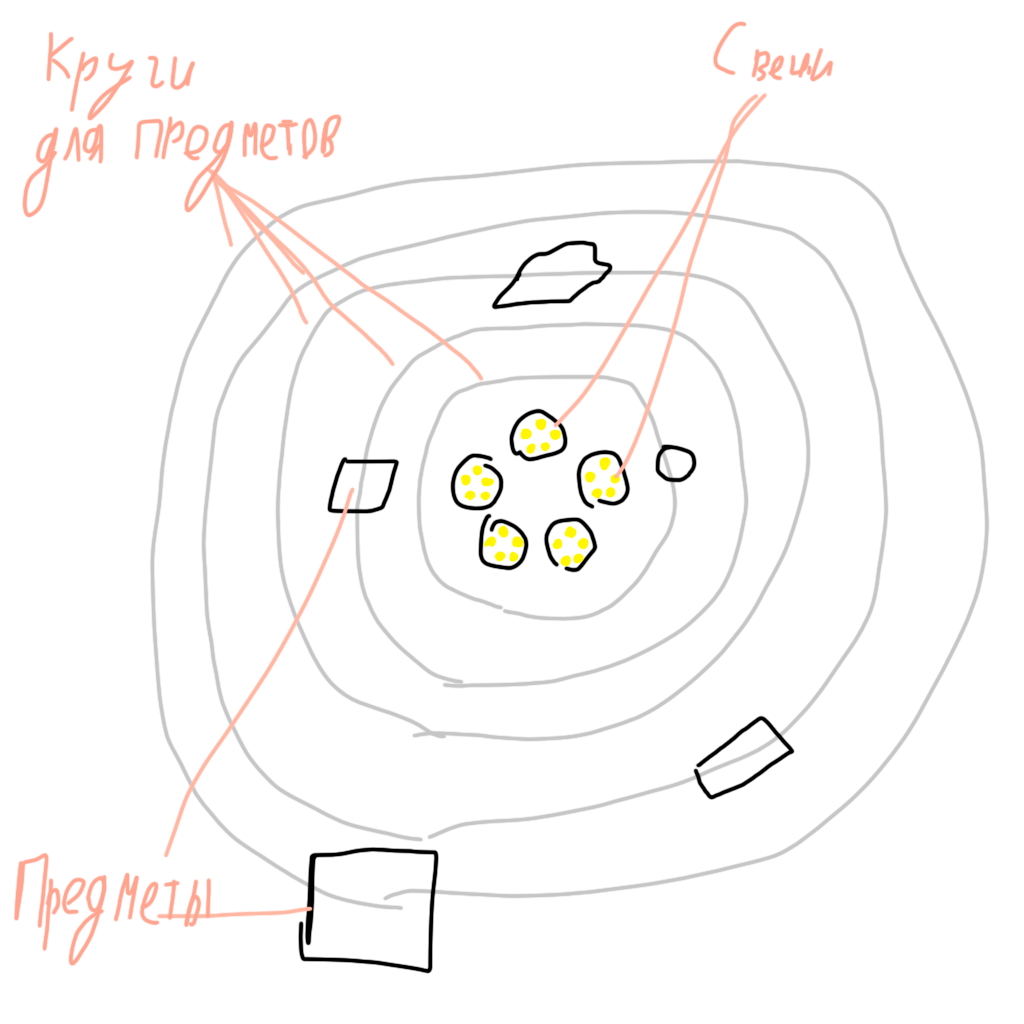 Круги
для предметов
Свечи
Предметы